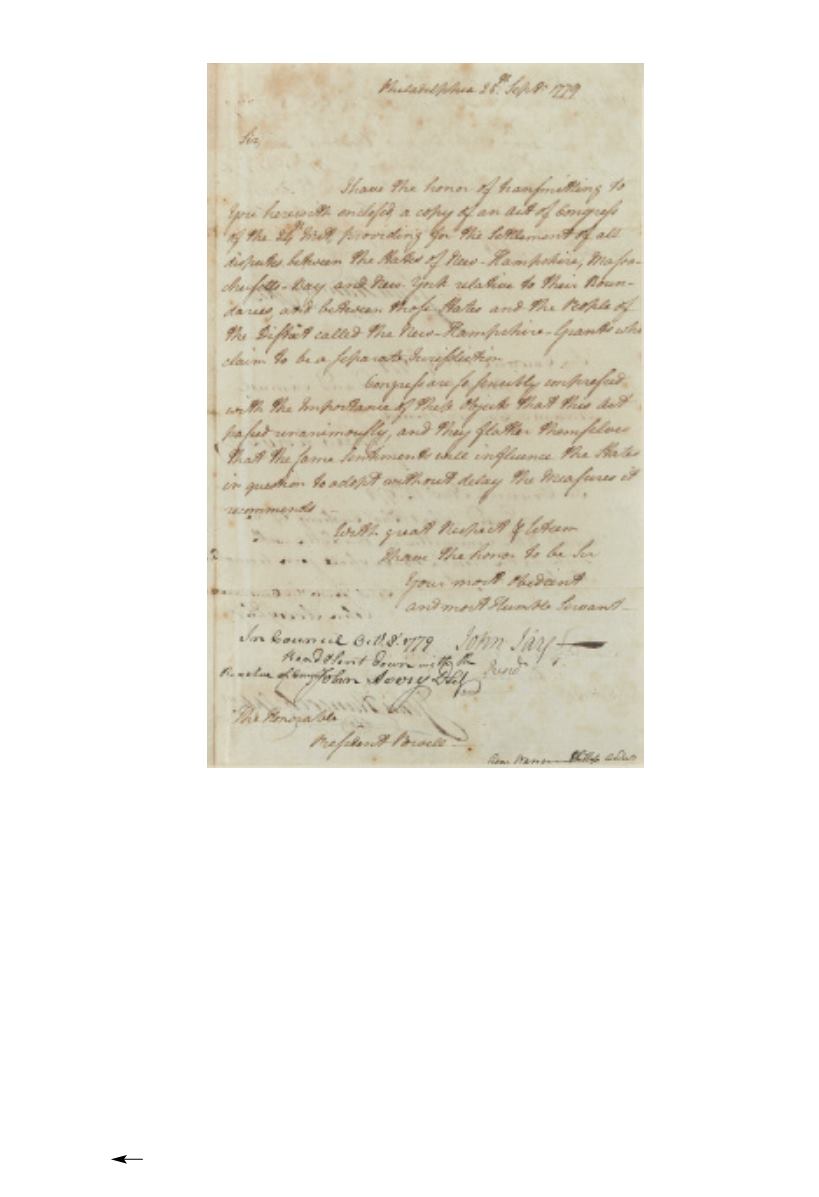 Philadelphia 26th Septr 1779
Sir,
I have the honor of transmitting to
You herewith enclosed a copy of an act of Congress
of the 24th Inst. providing for the Settlement of all
disputes between the States of New-Hampshire, Massa-
chusetts-Bay, and New-York relative to their Boun-
daries, and between those States and the People of
the District called the New-Hampshire-Grants who
claim to be a separate Jurisdiction
Congress are so sensibly impressed
with the Importance of these Objects that this Act
passed unanimously, and they flatter themselves
that the same Sentiments will influence the States
in question to adopt without delay the Measures it
recommends –
With great Respect & Esteem
I have the honor to be Sir
Your most Obedient
and most Humble Servant –
In Council Oct. 8. 1779 John Jay
Read & Sent down with the Presidt
Resolve of Congress John Avery D Secy
The Honorable
President Powell –